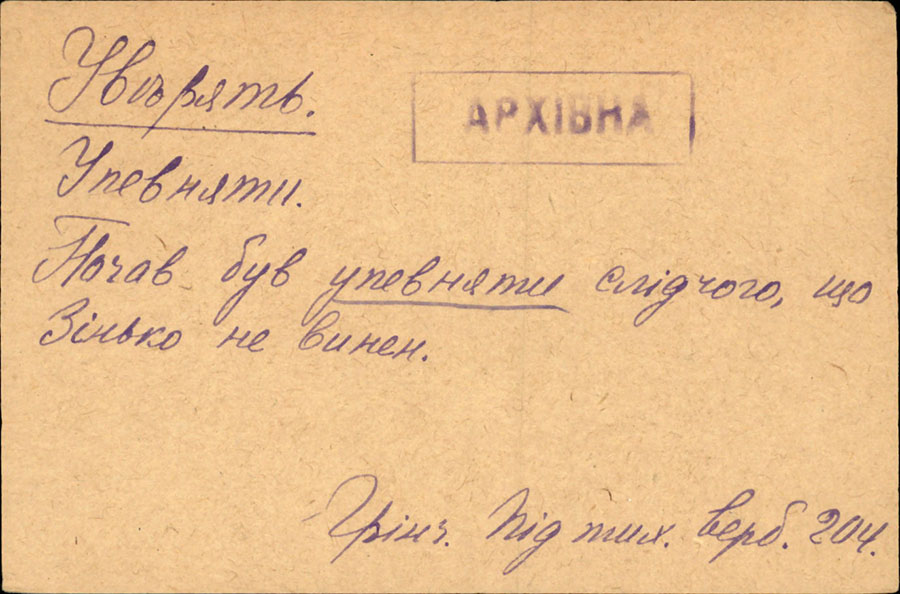 Увѣрять.
АРХІВНА
Упевняти.
Почав був упевняти слідчого, що
Зінько не винен.
Грінч. Під тих. верб. 204.